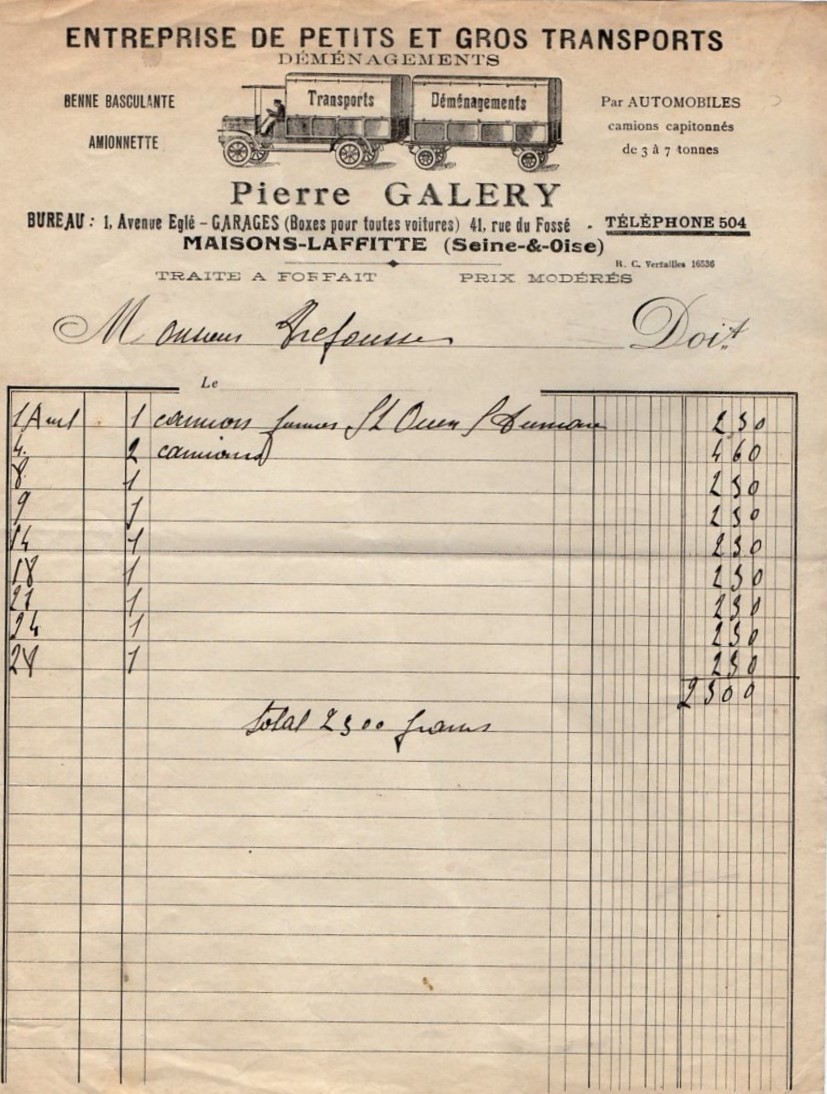 ENTREPRISE DE PETITS ET GROS TRANSPORTS
DÉMÉNAGEMENTS
BENNE BASCULANTE
AMIONNETTE
Transports
Déménagements
Par AUTOMOBILES
camions capitonnés
de 3 à 7 tonnes
Pierre GALERY
BUREAU : 1, Avenue Eglé – GARAGES (Boxes pour toutes voitures) 41, rue du Fossé - TÉLÉPHONE 504
MAISONS-LAFFITTE (Seine-&-Oise)
R. C. Versailles 16536
TRAITE A FORFAIT PRIX MODÉRÉS
Monsieur Doit
Le
1 Avril 1 camion St Ouen 230
4. 2 camions 460
8 1 230
9 1 230
14 1 230
18 1 230
21 1 230
24 1 230
28 1 230
2300
total 2300 francs